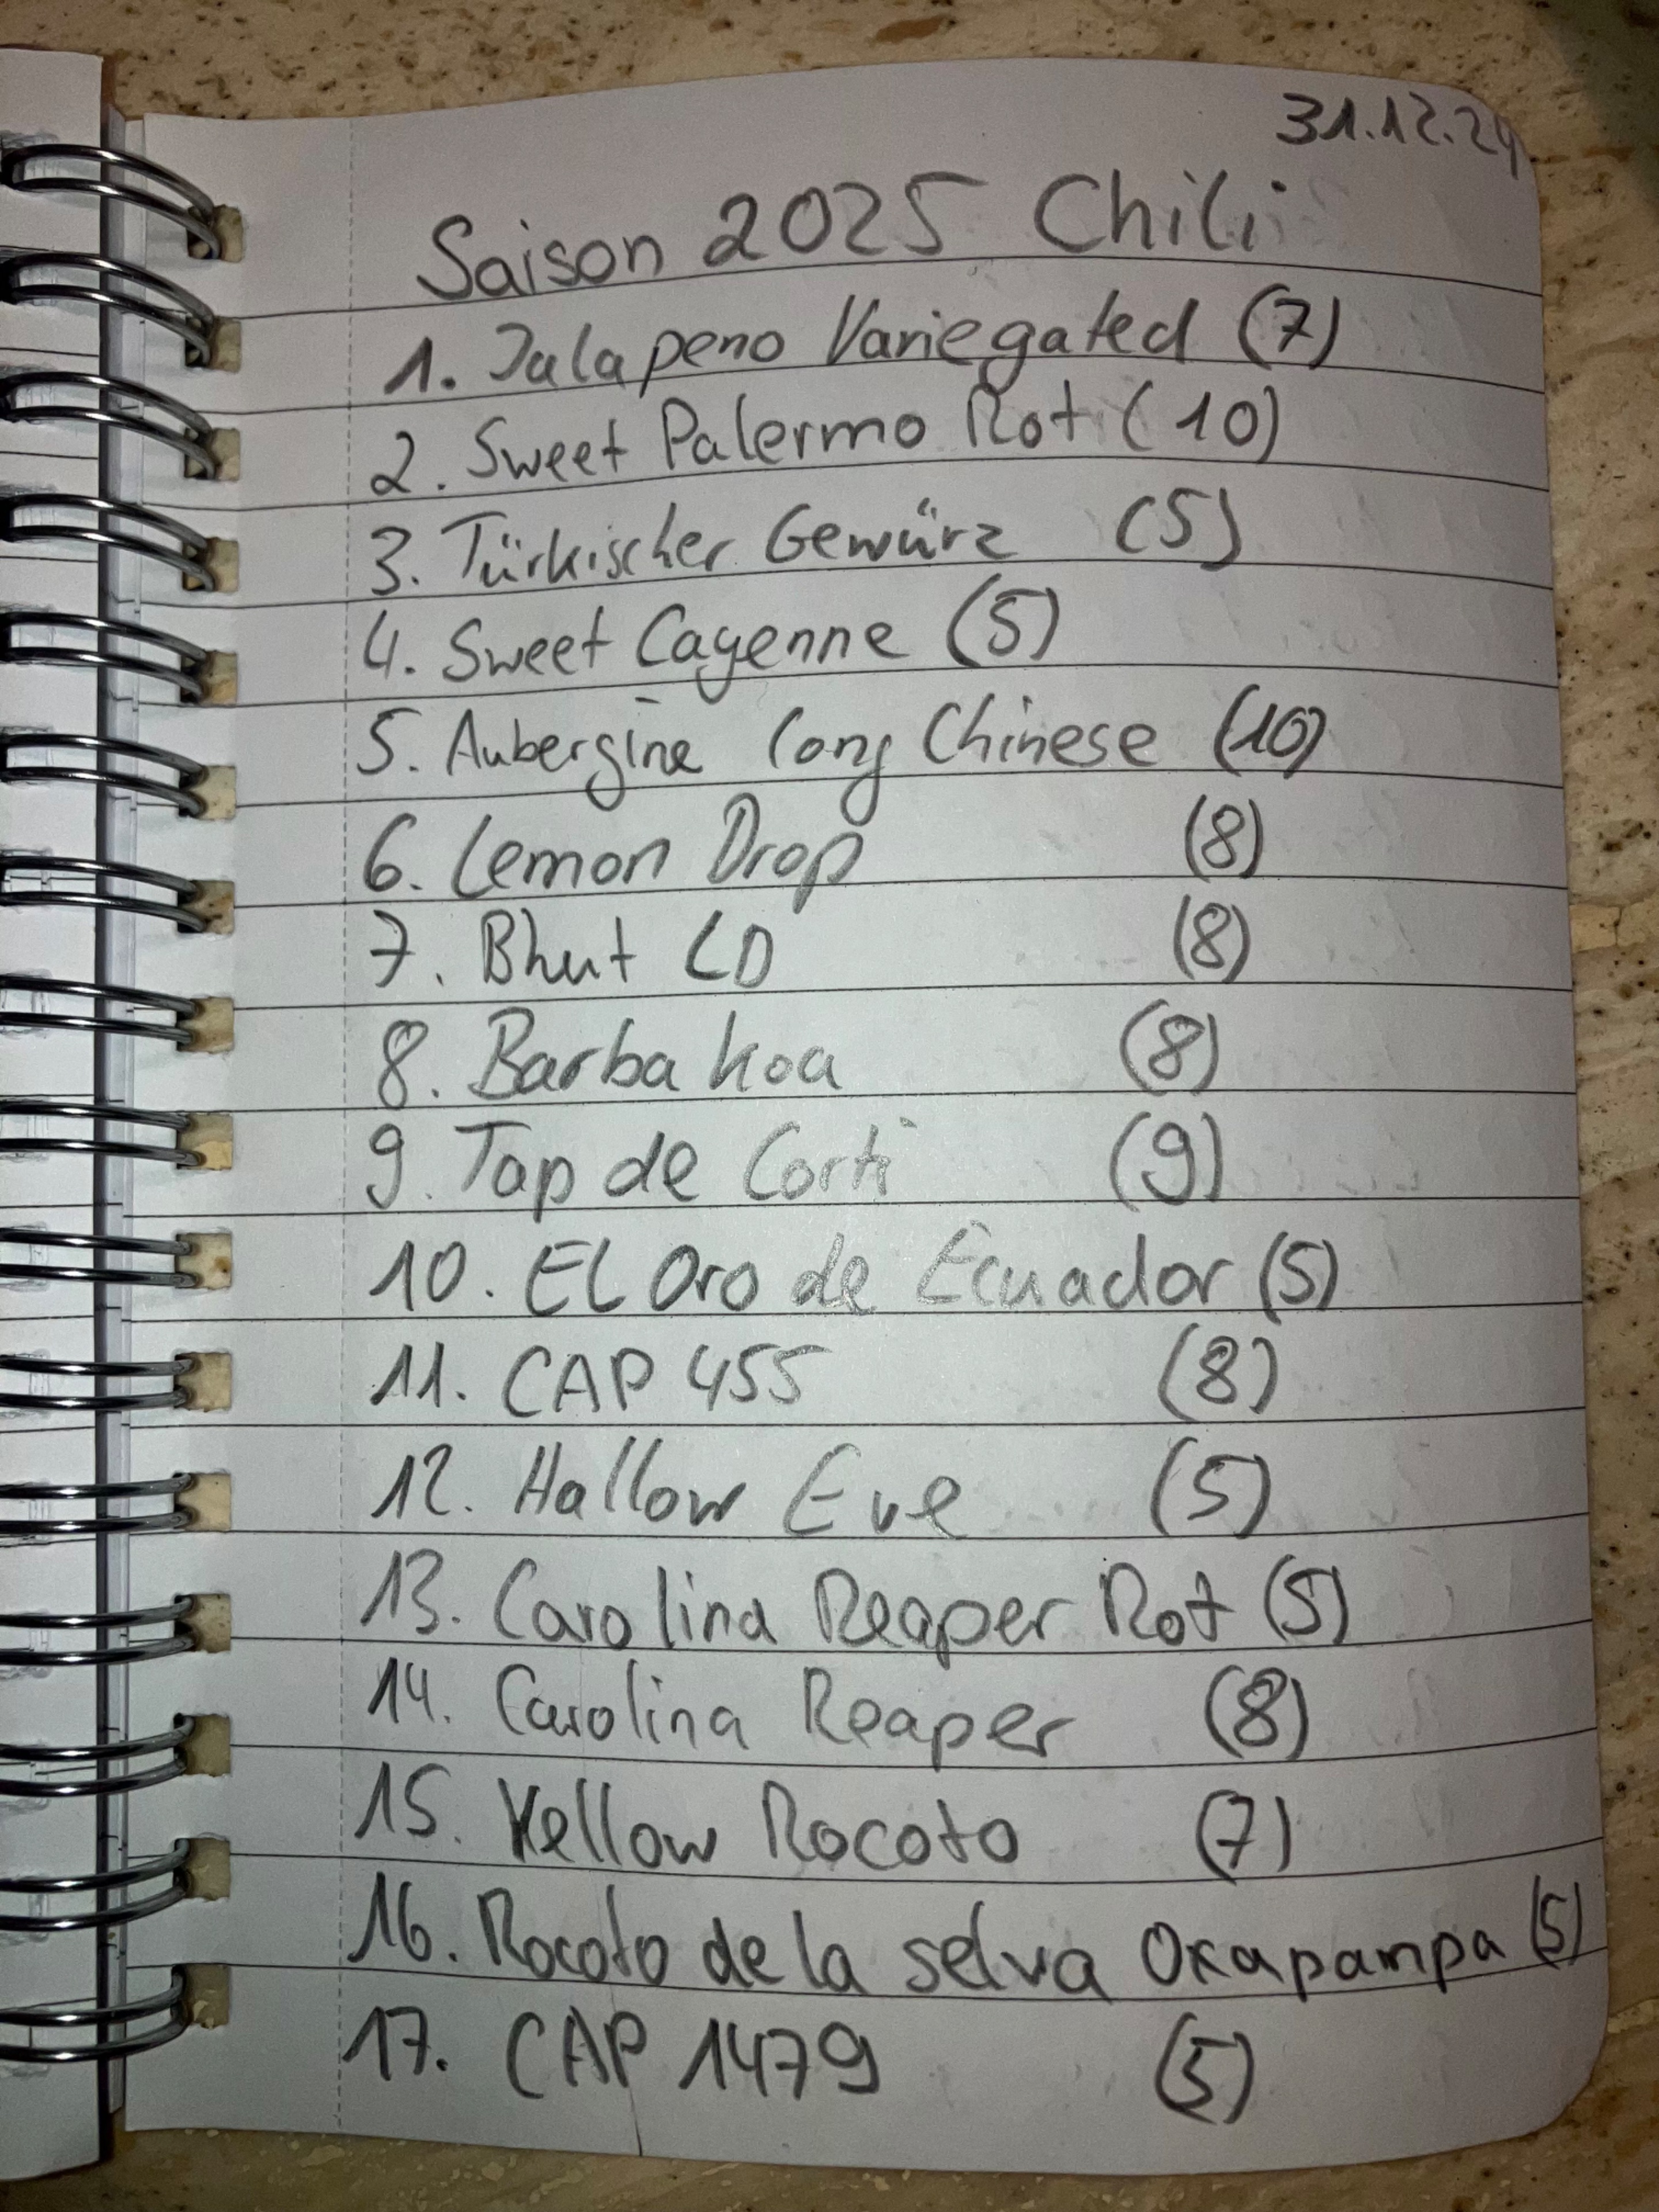 31.12.24
Saison 2025 Chili
1. Jalapeno Variegated (7)
2. Sweet Palermo Rot (10)
3. Türkischer Gewürz (5)
4. Sweet Cayenne (5)
5. Aubergine long Chinese (10)
6. Lemon Drop (8)
7. Bhut LD (8)
8. Barbakoa (8)
9. Tap de Corti (9)
10. El Oro de Ecuador (5)
11. CAP 455 (8)
12. Hallow Eve (5)
13. Carolina Reaper Rot (5)
14. Carolina Reaper (8)
15. Yellow Rocoto (7)
16. Rocoto de la selva Oxapampa (5)
17. CAP 1479 (5)